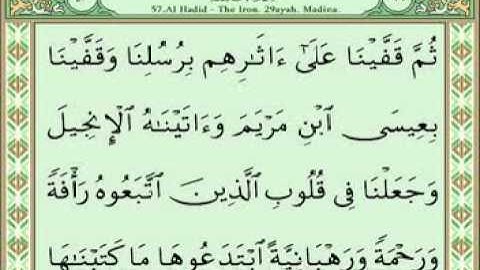 57.Al Hadid - The Iron. 29ayah. Madina.
ثُمَّ قَفَّيْنَا عَلَىٰٓ ءَاثَٰرِهِم بِرُسُلِنَا وَقَفَّيْنَا
بِعِيسَى ٱبْنِ مَرْيَمَ وَءَاتَيْنَٰهُ ٱلْإِنجِيلَ
وَجَعَلْنَا فِى قُلُوبِ ٱلَّذِينَ ٱتَّبَعُوهُ رَأْفَةً
وَرَحْمَةً وَرَهْبَانِيَّةً ٱبْتَدَعُوهَا مَا كَتَبْنَٰهَا